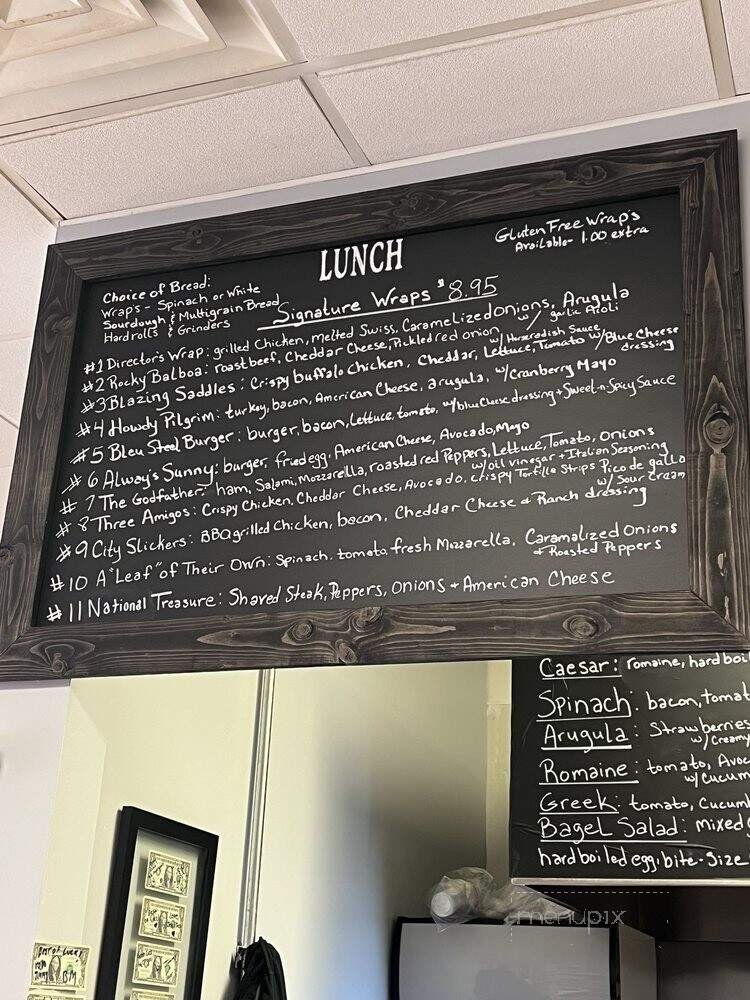 LUNCH
Gluten Free Wrap's
Available- 1.00 extra
Choice of Bread:
Wrap's - Spinach or White
Sourdough & Multigrain Bread
Hard rolls & Grinders
Signature Wraps $8.95
#1 Director's Wrap: grilled Chicken, melted Swiss, Caramelized onions, Arugula
w/ garlic Aioli
#2 Rocky Balboa: roast beef, Cheddar Cheese, Pickled red onion,
w/ Horseradish Sauce
#3 Blazing Saddles: Crispy buffalo Chicken, Cheddar, Lettuce, Tomato w/ Blue Cheese
dressing
#4 Howdy Pilgrim: turkey, bacon, American Cheese, arugula, w/ Cranberry Mayo
#5 Bleu Steel Burger: burger, bacon, Lettuce, tomato, w/ blue Cheese dressing + Sweet-n-Spicy Sauce
#6 Alway's Sunny: burger, fried egg, American Cheese, Avocado, Mayo
#7 The Godfather: ham, Salami, Mozzarella, roasted red Peppers, Lettuce, Tomato, Onions
w/ oil vinegar + Italian Seasoning
#8 Three Amigos: Crispy Chicken, Cheddar Cheese, Avocado, Crispy Tortilla Strips Pico de gallo
w/ Sour Cream
#9 City Slickers: BBQ grilled Chicken, bacon, Cheddar Cheese & Ranch dressing
#10 A "Leaf" of Their Own: Spinach, tomato, fresh Mozzarella, Caramalized Onions
+ Roasted Peppers
#11 National Treasure: Shaved Steak, Peppers, Onions + American Cheese
Caesar: romaine, hard boi
Spinach: bacon, tomat
Arugula: Strawberries
w/ Creamy
Romaine: tomato, Avoc
w/ Cucum
Greek: tomato, Cucum
Bagel Salad: mixed
hard boiled egg, bite-Size
menupix